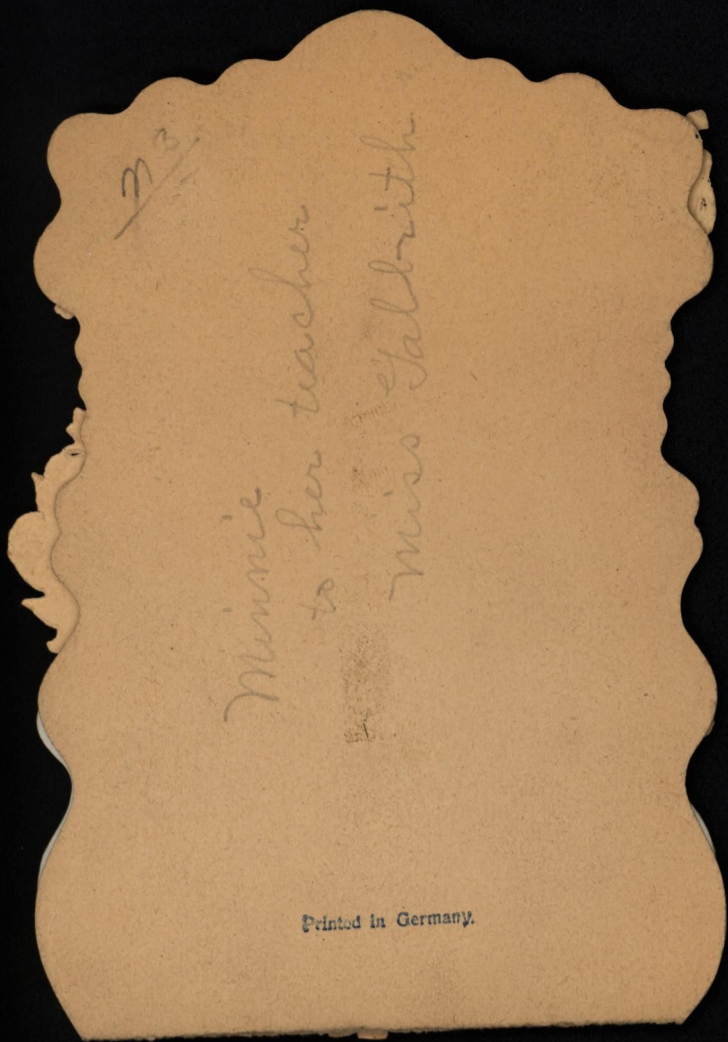 Minnie
to her teacher
Miss Galbreith
Printed in Germany.